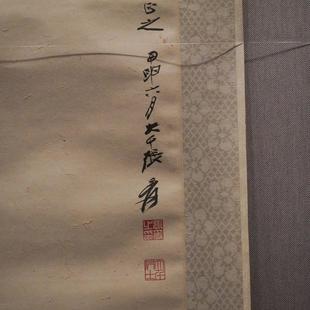 正之 甲申六月大千張爰